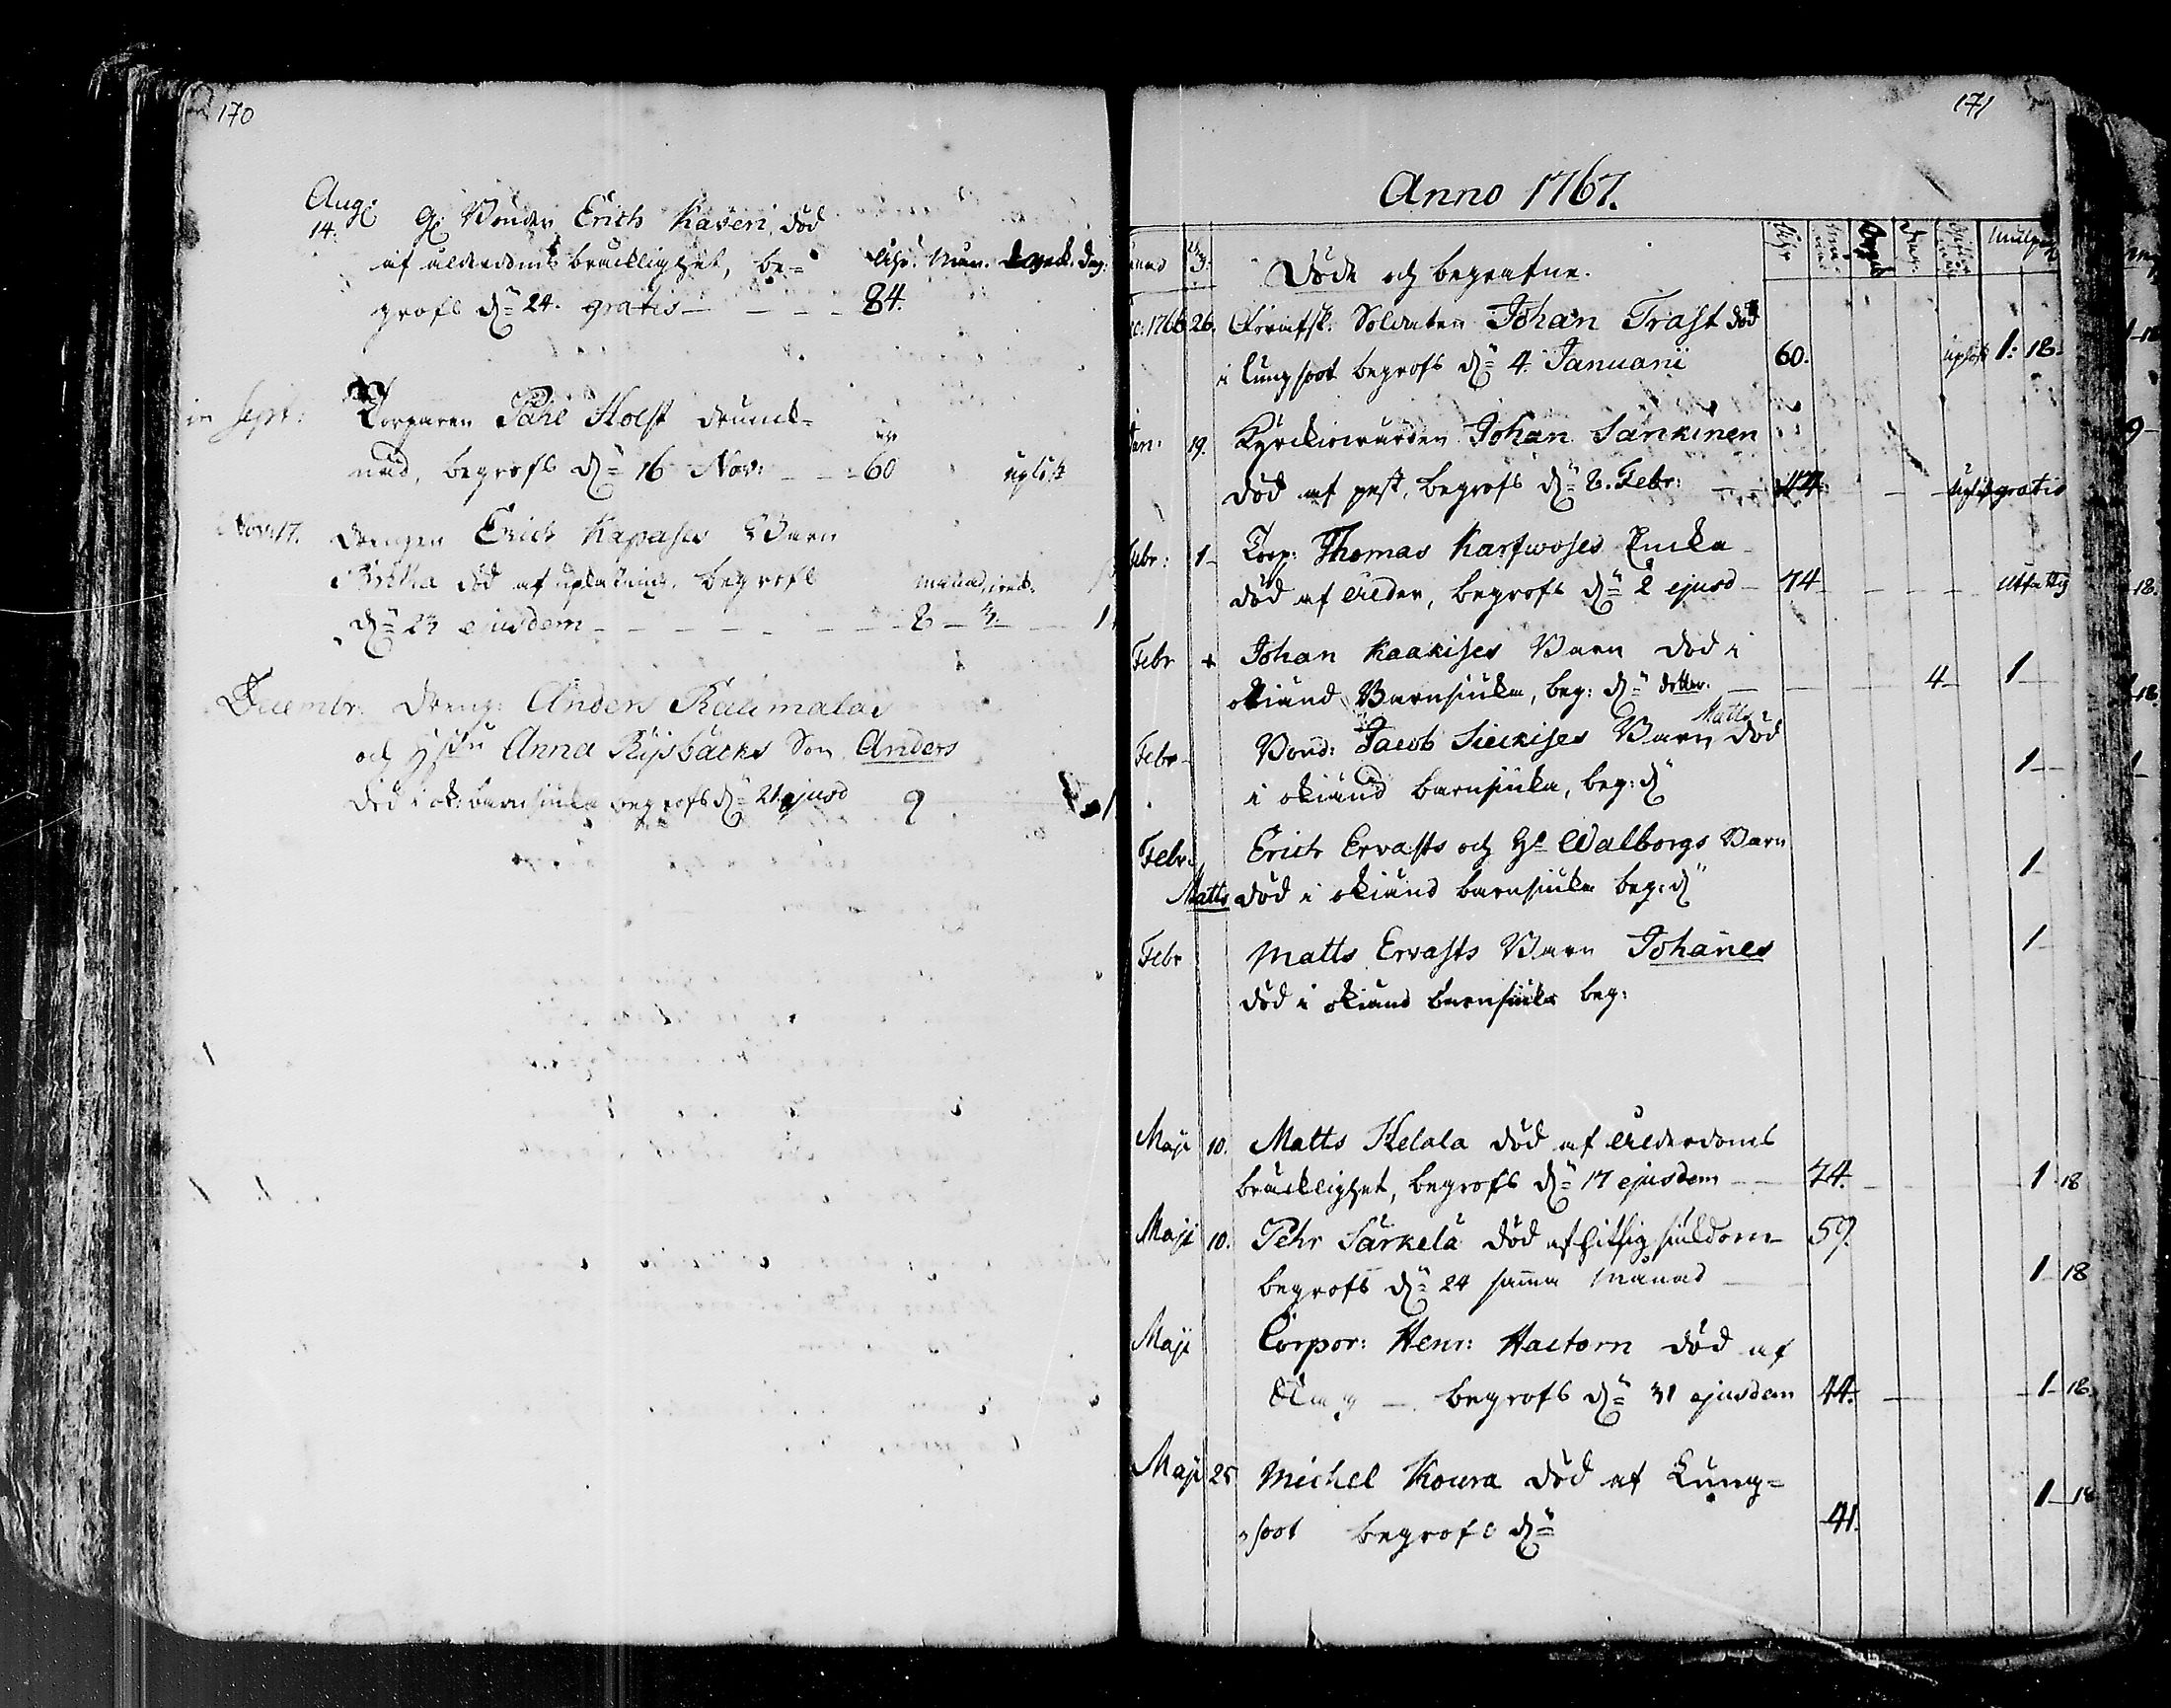 170
Aug:
14. G: Bonden Erich Kaveri, död
af ålderdoms bräcklighet, be=
Åhr. Mån. Dag.
grofs dn 24. gratis 84.
in Sept: Torparen Påhl Holst drunck=
nad, begrofs dn 16 Nov: 60
Nov: 17. Drengen Erich Kapases Barn
död af begrofs
månad, veck.
dn 23 ejusdem 2 3
Decembr. Dreng: Anders Raumalas
och Hstu Anna Rijsbacks Son Anders
död i ok: barnsiuka begrofs dn 21 ejusd 9
171
Anno 1767.
Döde och begrafne.
1766 26. Soldaten Johan Trast död
i lungsoot begrofs dn 4. Januarii 60. 1: 18.
Jan: 19. Kyrckiowärden Johan Sankinen
död af pest, begrofs dn 8. Febr: gratis
Febr: 1 Corp: Thomas Karfwoses Encka
död af Ålder, begrofs dn 2 ejusd 74 utfattig
Febr Johan Kaakises Barn död i
okiänd Barnsiuka, beg: dn 4 1
Matts
Febr Bond: Jacob Sieckises Barn död
i okiänd barnsiuka, beg: dn 1
Febr: Erich Ervasts och H: Walborgs Barn
Matts död i okiänd barnsiuka beg: dn 1
Febr Matts Ervasts Barn Johanes 1
död i okiänd barnsiuka beg:
Maji 10. Matts Helala död af Ålderdoms
bräcklighet, begrofs dn 17 ejusdem 74. 1 18
Maji 10. Pehr Särkelä död af hitsig siukdom 59.
begrofs dn 24 sama Månad 1 18
Maji Corpor: Henr: Hactorn död af
begrofs dn 31 ejusdem 44. 1 18
Maji 25 Michel Koura död af Lung=
soot begrofs dn 41. 1 18